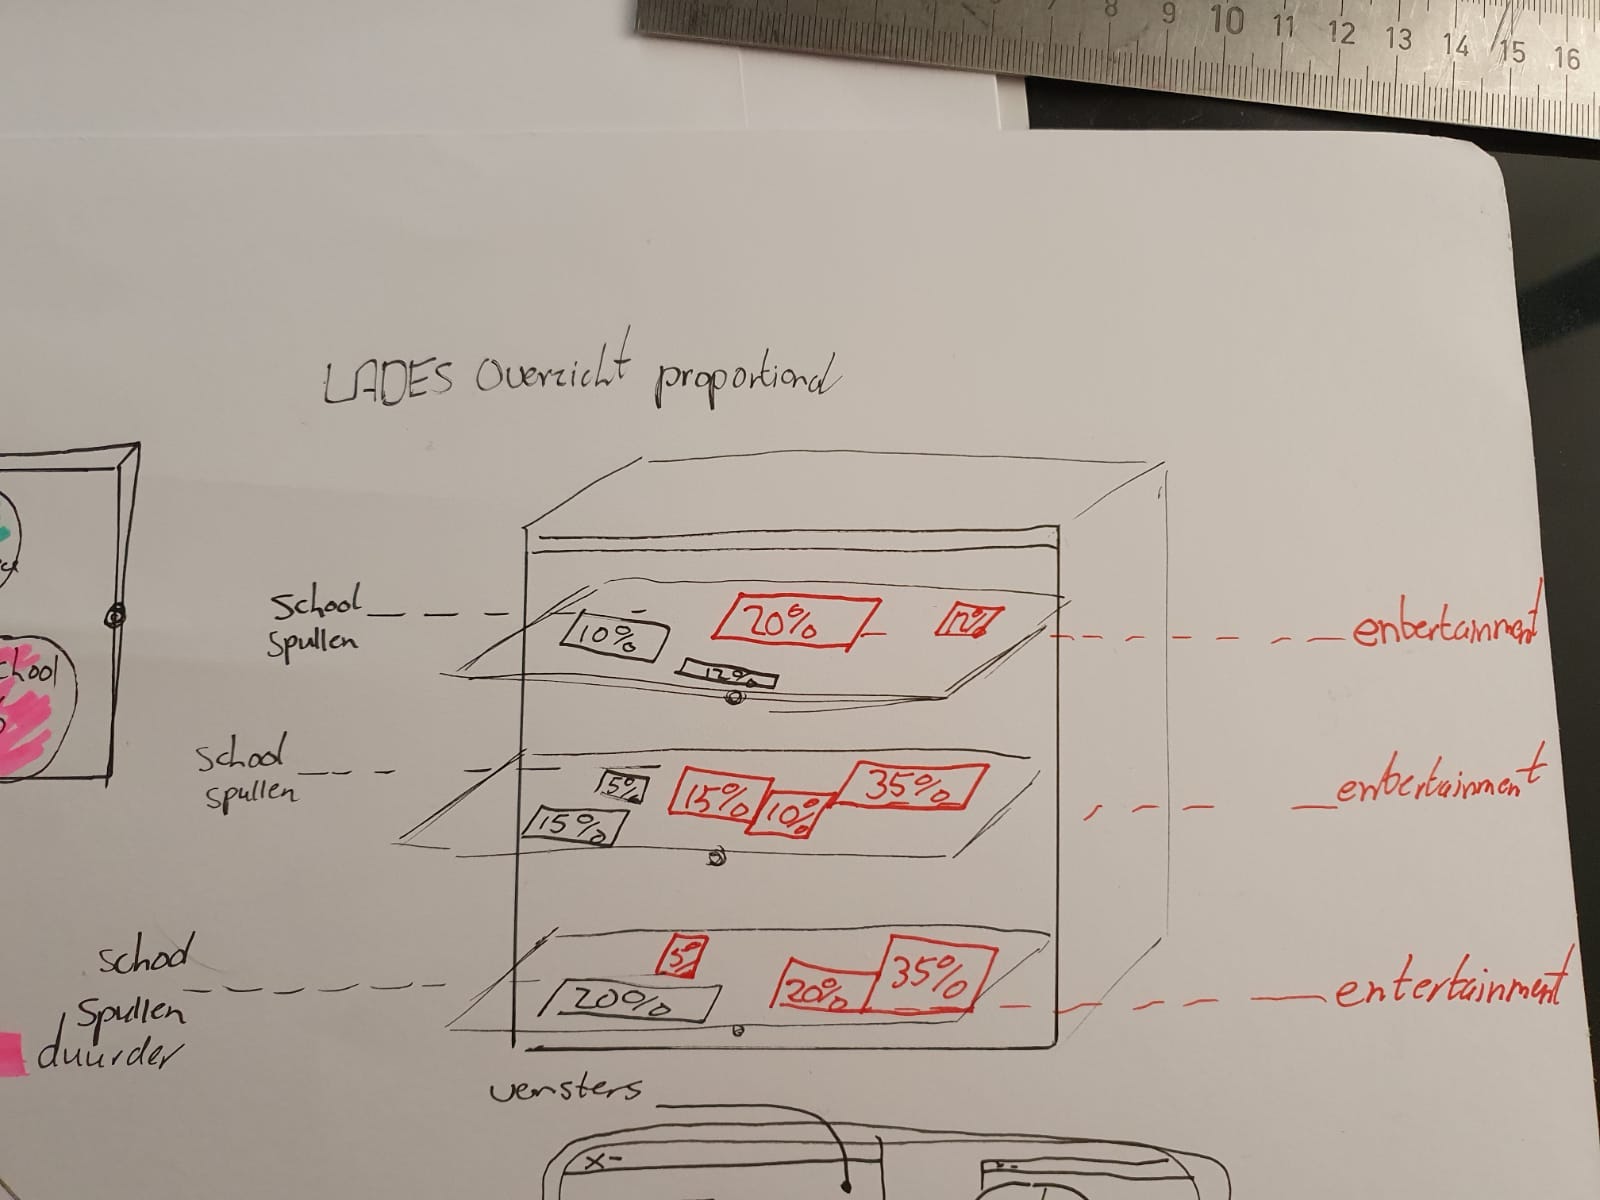 8 9 10 11 12 13 14 15 16
LADES Overzicht proportional
School
spullen
10%
20%
12%
enbertainment
school
spullen
5%
15%
15%
10%
35%
enbertainment
chool
school
Spullen
duurder
5%
20%
20%
35%
entertainment
vensters
x-